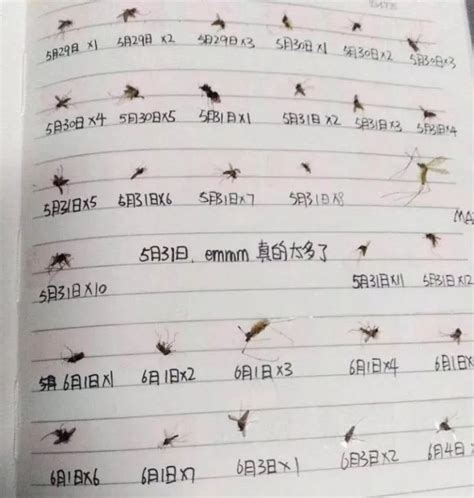 DATE
5月29日 x1 5月29日 x2 5月29日 x3 5月30日x1 5月30日x2 5月30日x3
5月30日x4 5月30日x5 5月31日x1 5月31日x2 5月31日x3 5月31日x4
5月31日x5 5月31日x6 5月31日x7 5月31日x8
5月31日x10 5月31日, emmm 真的太多了 5月31日x11 5月31日x12
6月1日x1 6月1日x2 6月1日x3 6月1日x4
6月1日x6 6月1日x7 6月3日x1 6月3日x2 6月4日